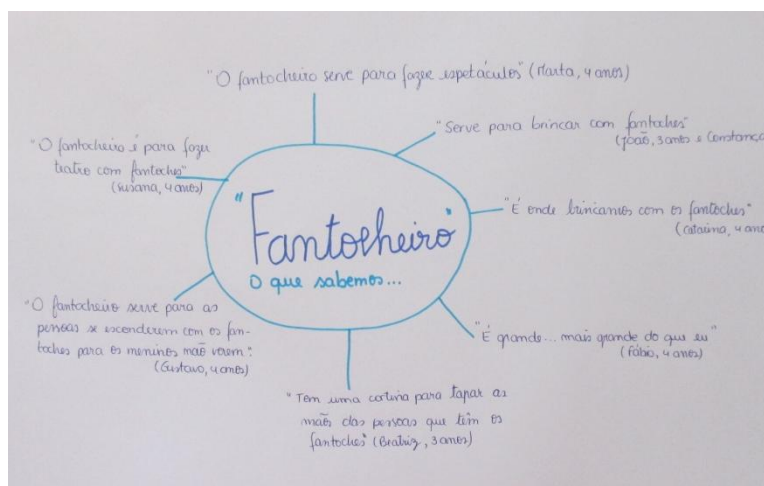 "O fantocheiro serve para fazer espetáculos" (Marta, 4 anos)
"Serve para brincar com fantoches"
(João, 3 anos e Constança
"É onde brincamos com os fantoches"
(Catarina, 4 ano
"É grande... mais grande do que eu"
(Fábio, 4 anos)
"Tem uma cortina para tapar as
mãos das pessoas que têm os
fantoches" (Beatriz, 3 anos)
"O fantocheiro serve para as
pessoas se esconderem com os fan-
toches para os meninos não verem"
(Gustavo, 4 anos)
"O fantocheiro é para fazer
teatro com fantoches"
(Susana, 4 anos)
"Fantocheiro"
O que sabemos...